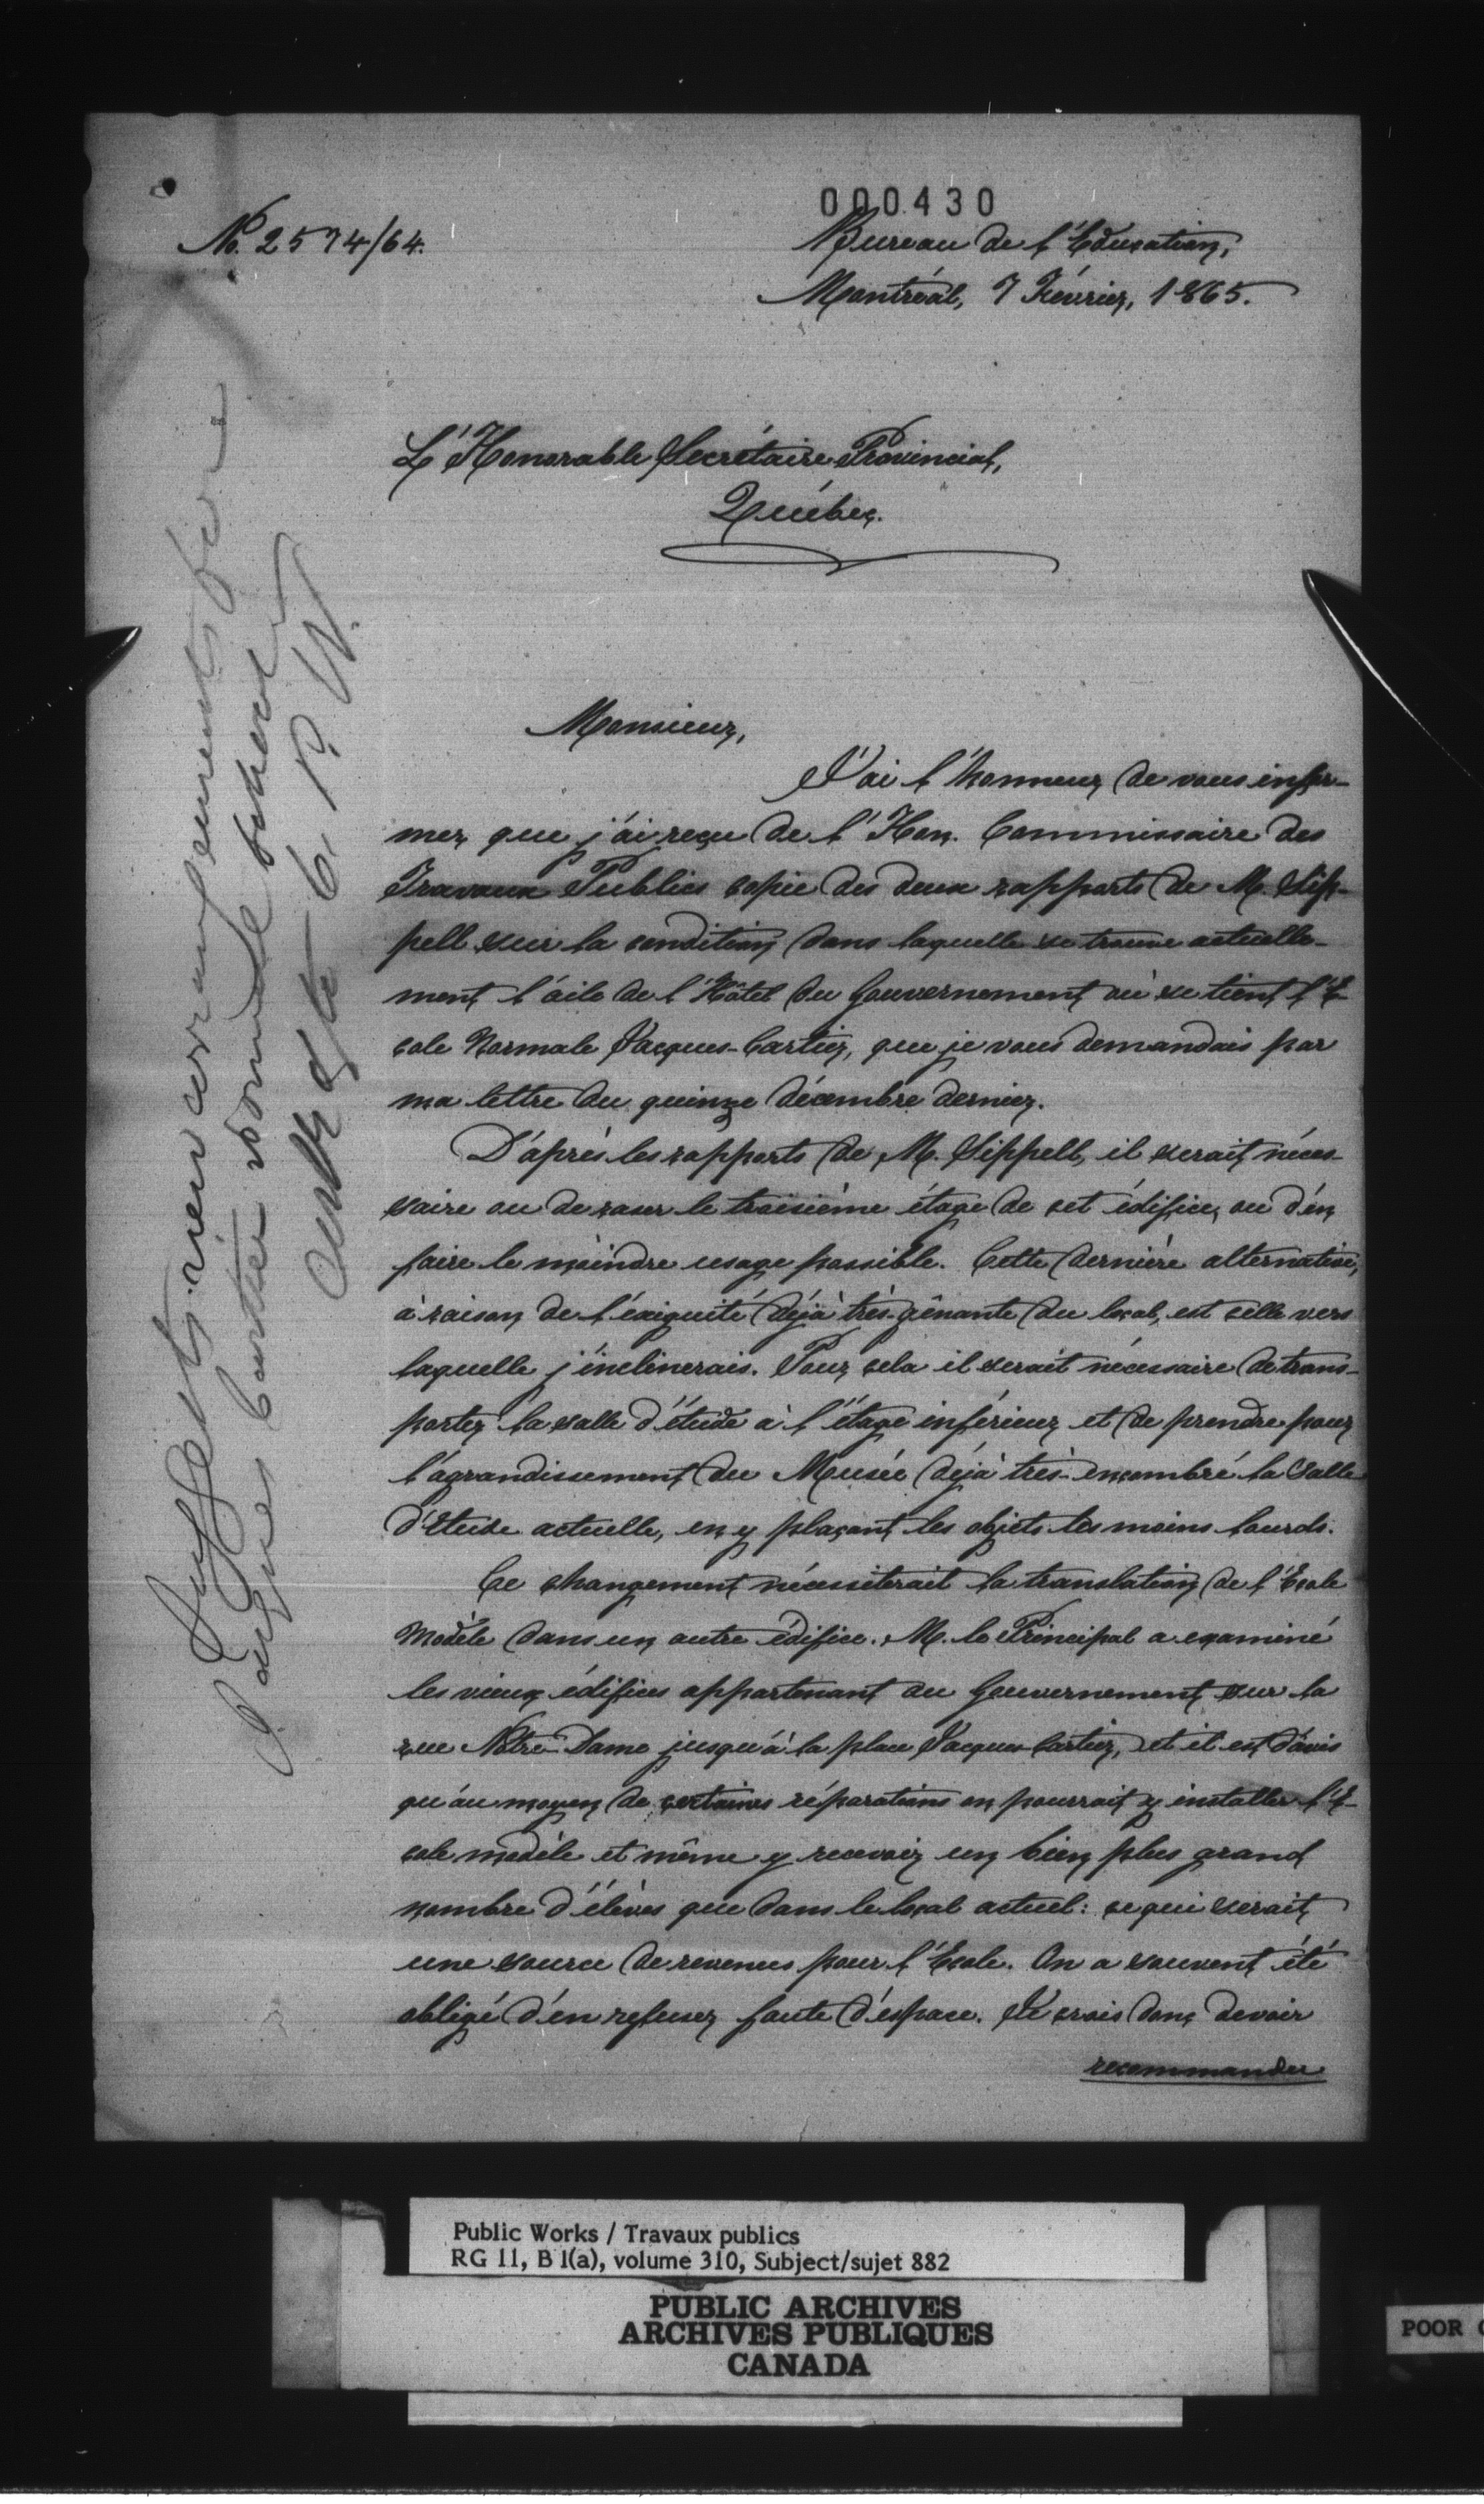 000430
No. 2574/64.
Bureau de l'Education,
Montréal, 7 Février, 1865.
L'Honorable Secrétaire Provincial,
Québec.
Monsieur,
J'ai l'honneur de vous infor-
mer que j'ai reçu de l'Hon. Commissaire des
Travaux Publics copie des deux rapports de M. Sip-
pell sur la condition dans laquelle se trouve actuelle-
ment l'aile de l'Hôtel du Gouvernement où se tient l'E-
cole Normale Jacques-Cartier, que je vous demandais par
ma lettre du quinze décembre dernier.
D'après les rapports de M. Sippell, il serait néces-
saire ou de raser le troisième étage de cet édifice, ou d'en
faire le moindre usage possible. Cette dernière alternative,
à raison de l'exiguité déjà très-gênante du local, est celle vers
laquelle j'inclinerais. Pour cela il serait nécessaire de trans-
porter la salle d'étude à l'étage inférieur et de prendre pour
l'agrandissement du Musée déjà très-encombré la Salle
d'étude actuelle, en y plaçant les objets les moins lourds.
Ce changement nécessiterait la translation de l'Ecole
Modèle dans un autre édifice. M. le Principal a examiné
les vieux édifices appartenant au Gouvernement sur la
rue Notre-Dame jusqu'à la place Jacques-Cartier, et il est d'avis
qu'au moyen de certaines réparations on pourrait y installer l'E-
cole modèle et même y recevoir un bien plus grand
nombre d'élèves que dans le local actuel: ce qui serait
une source de revenus pour l'Ecole. On a souvent été
obligé d'en refuser faute d'espace. Je crois donc devoir
recommander
Suggests new arrangements for
Jacques Cartier Normal School
C. P. W.
Public Works / Travaux publics
RG 11, B 1(a), volume 310, Subject/sujet 882
PUBLIC ARCHIVES
ARCHIVES PUBLIQUES
CANADA
POOR